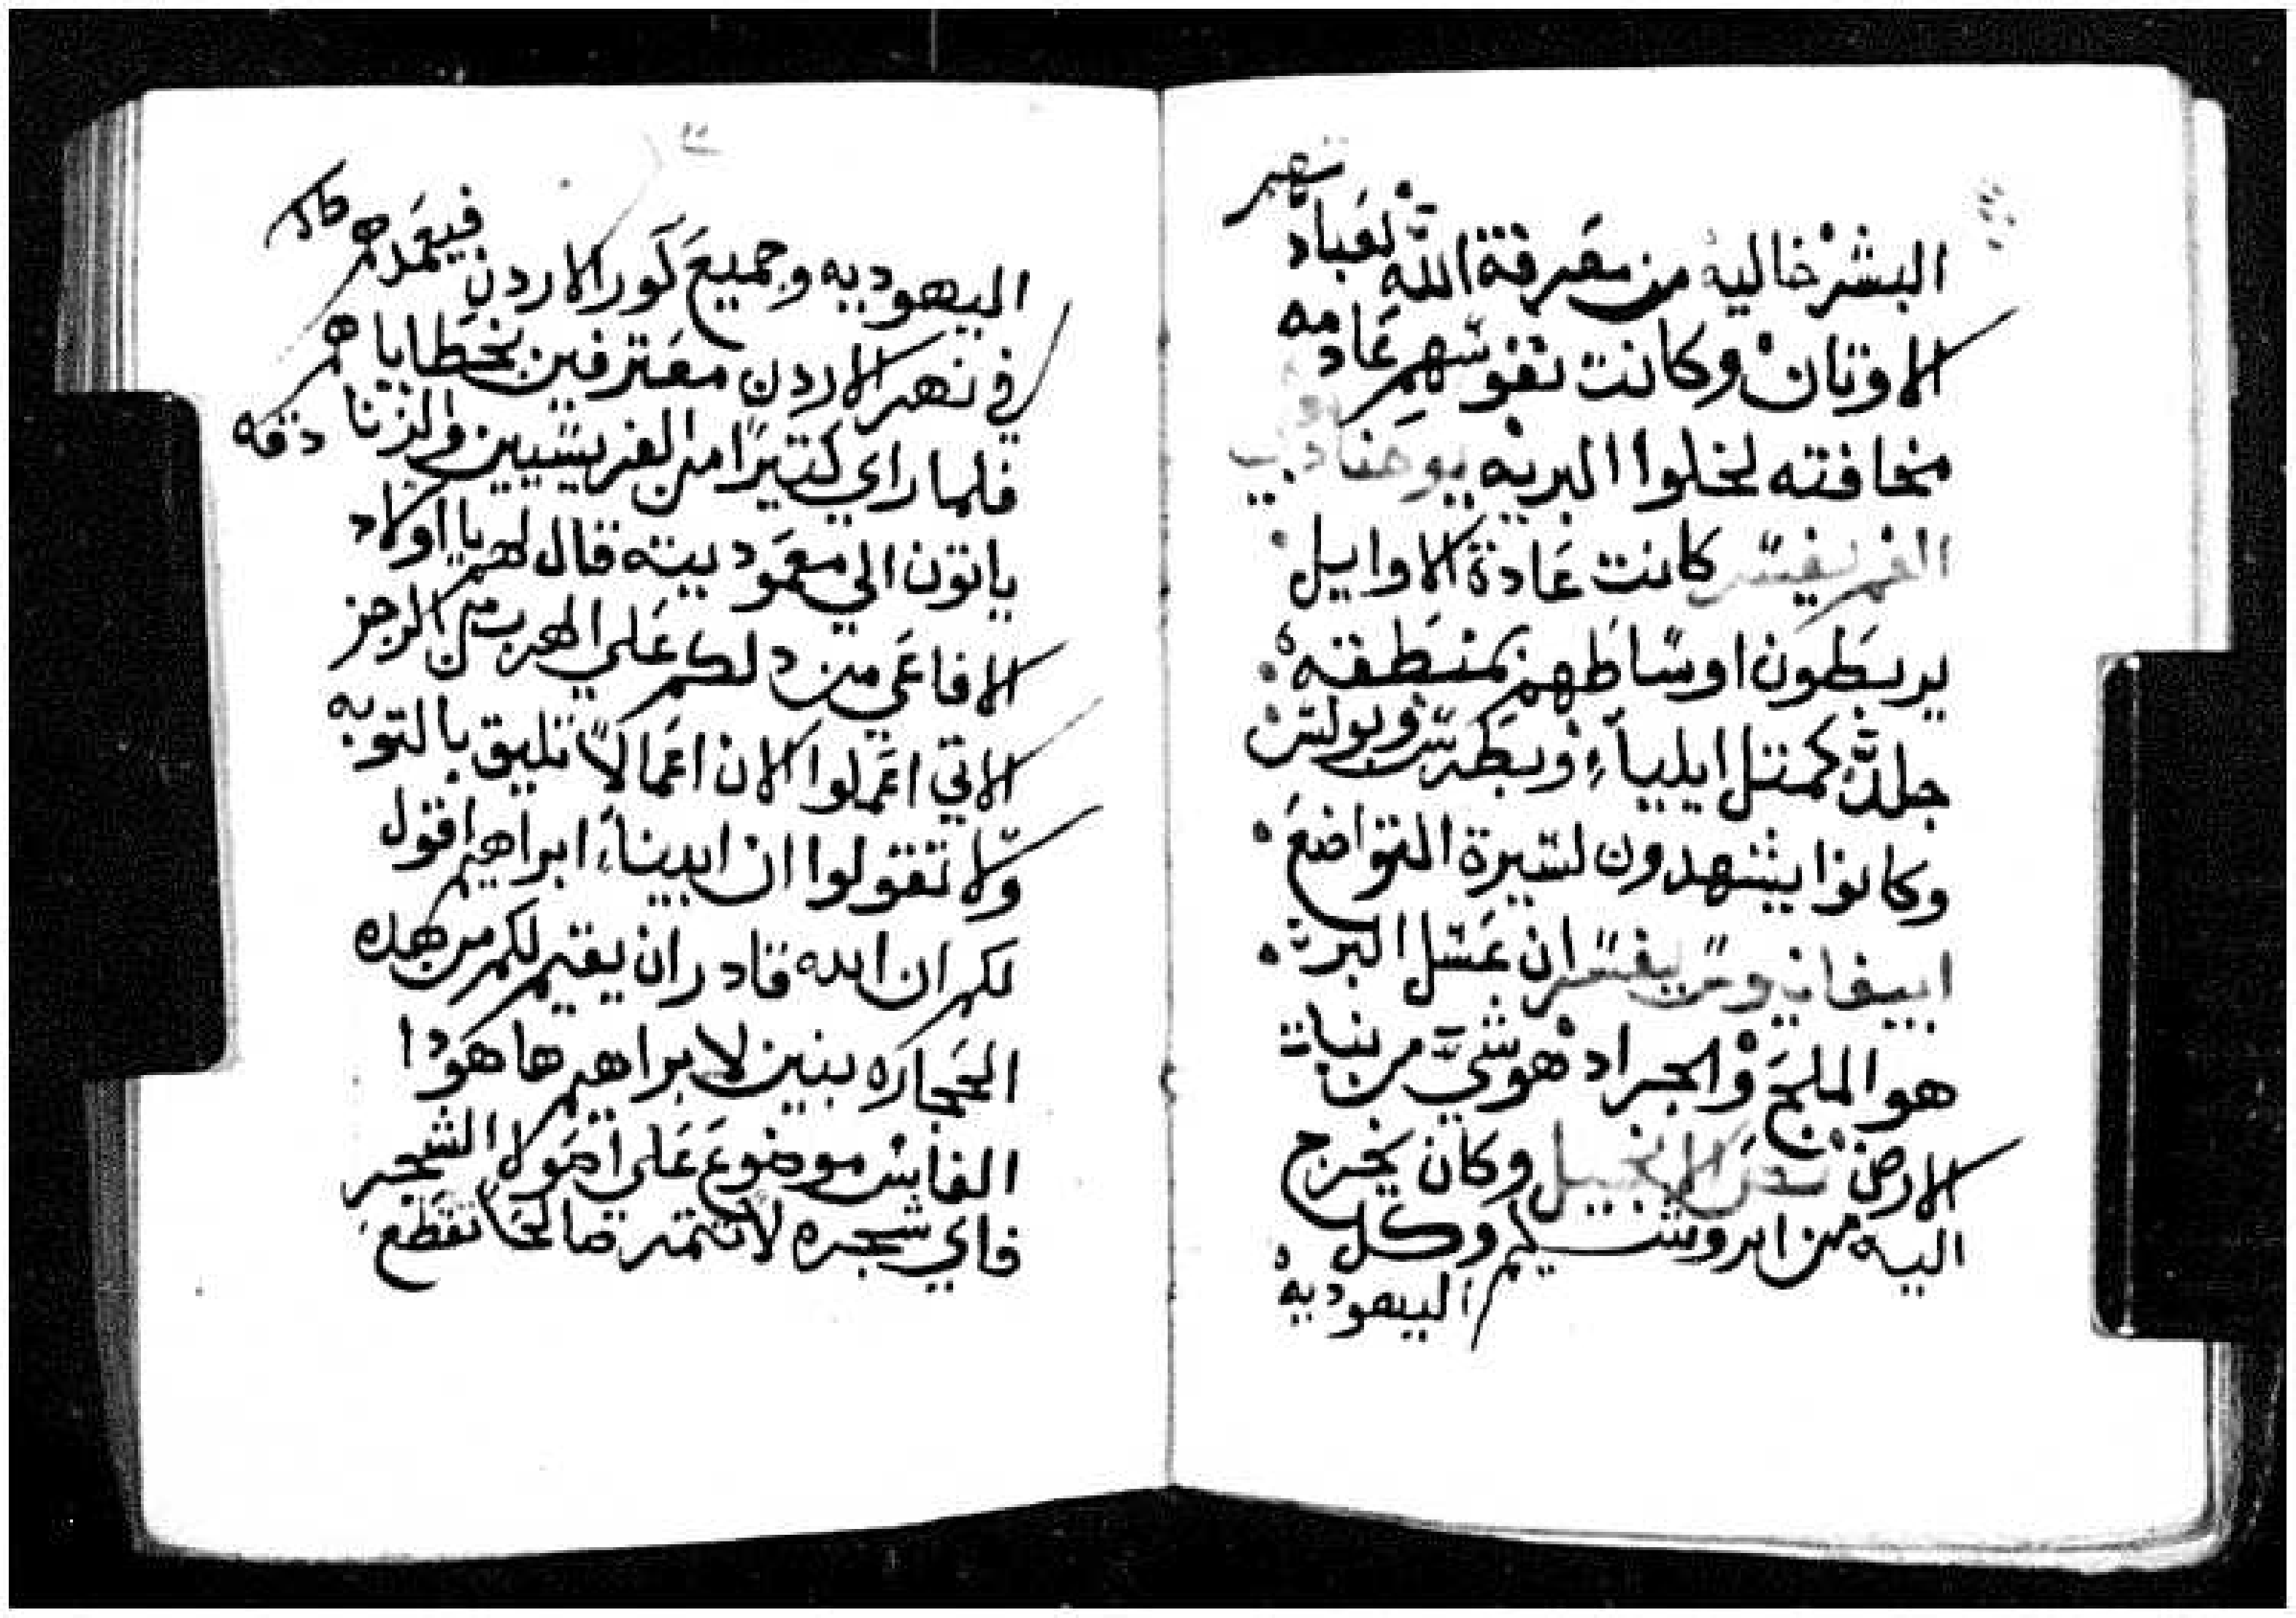 البشر خاليه من معرفة الله لعبادتهم
الاوتان وكانت نفوسهم عادمه
مخافته لخلوا البريه يوحنا
كانت عادة الاوايل
يربطون اوساطهم بمنطقه
جلد كمتل ايلياء وبطرس وبولس
وكانوا يشهدون لسيرة التواضع
ابيفانيوس يفسر ان عسل البر
هو الملح والجراد هو شي من نبات
الارض نص الانجيل وكان يخرج
اليه من ايروشليم وكل
اليهوديه
اليهوديه وجميع كور الاردن فيعمدهم
في نهر الاردن معترفين بخطاياهم
فلما راي كتيرا من الفريسيين والزنادقه
ياتون الي معموديته قال لهم يا اولاد
الافاعي من دلكم علي الهرب من الرجز
الاتي اعملوا الان اعمالا تليق بالتوبه
ولا تقولوا ان ابينا ابراهيم اقول
لكم ان الله قادر ان يقيم لكم من هده
الحجاره بنين لابراهيم ها هودا
الفاس موضوع علي اصول الشجر
فاي شجره لا تتمر صالحا تقطع